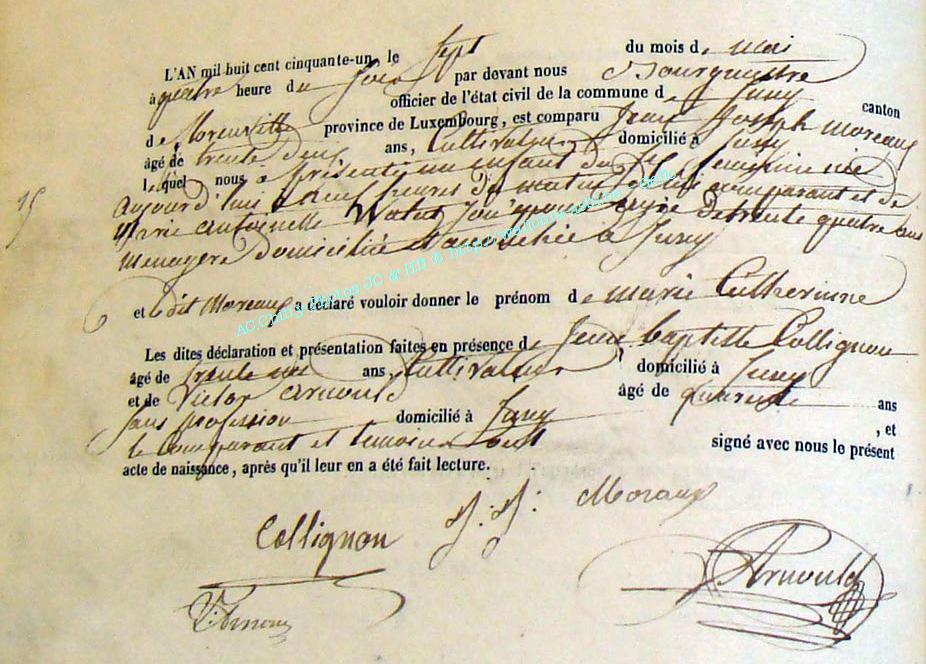 L'AN mil huit cent cinquante-un le Sept du mois de mai
à quatre heure du Soir par devant nous Bourguestre
officier de l'état civil de la commune de Suny canton
de florenville province de Luxembourg, est comparu Jean Joseph Moreaux
âgé de trente deux ans, Cultivateur domicilié à Suny
lequel nous a présenté un enfant du féminine née
Aujourd'hui à neuf heures du matin de lui comparant et de
15
Marie Antoinette Watet de trente quatre ans
Menagère Domiciliée et accouchée à Suny
et le dit Moreaux a déclaré vouloir donner le prénom de marie Catherinne
Les dites déclaration et présentation faites en présence de Jean Baptiste Collignon
âgé de trente ans, Cultivateur domicilié à Suny
et de Victor Arnould âgé de quarente ans
Sans profession domicilié à Suny , et
le Comparant et temoins ont signé avec nous le présent
acte de naissance, après qu'il leur en a été fait lecture.
Collignon J: J: Moraux
Arnould
AC Chiny Photos JC &